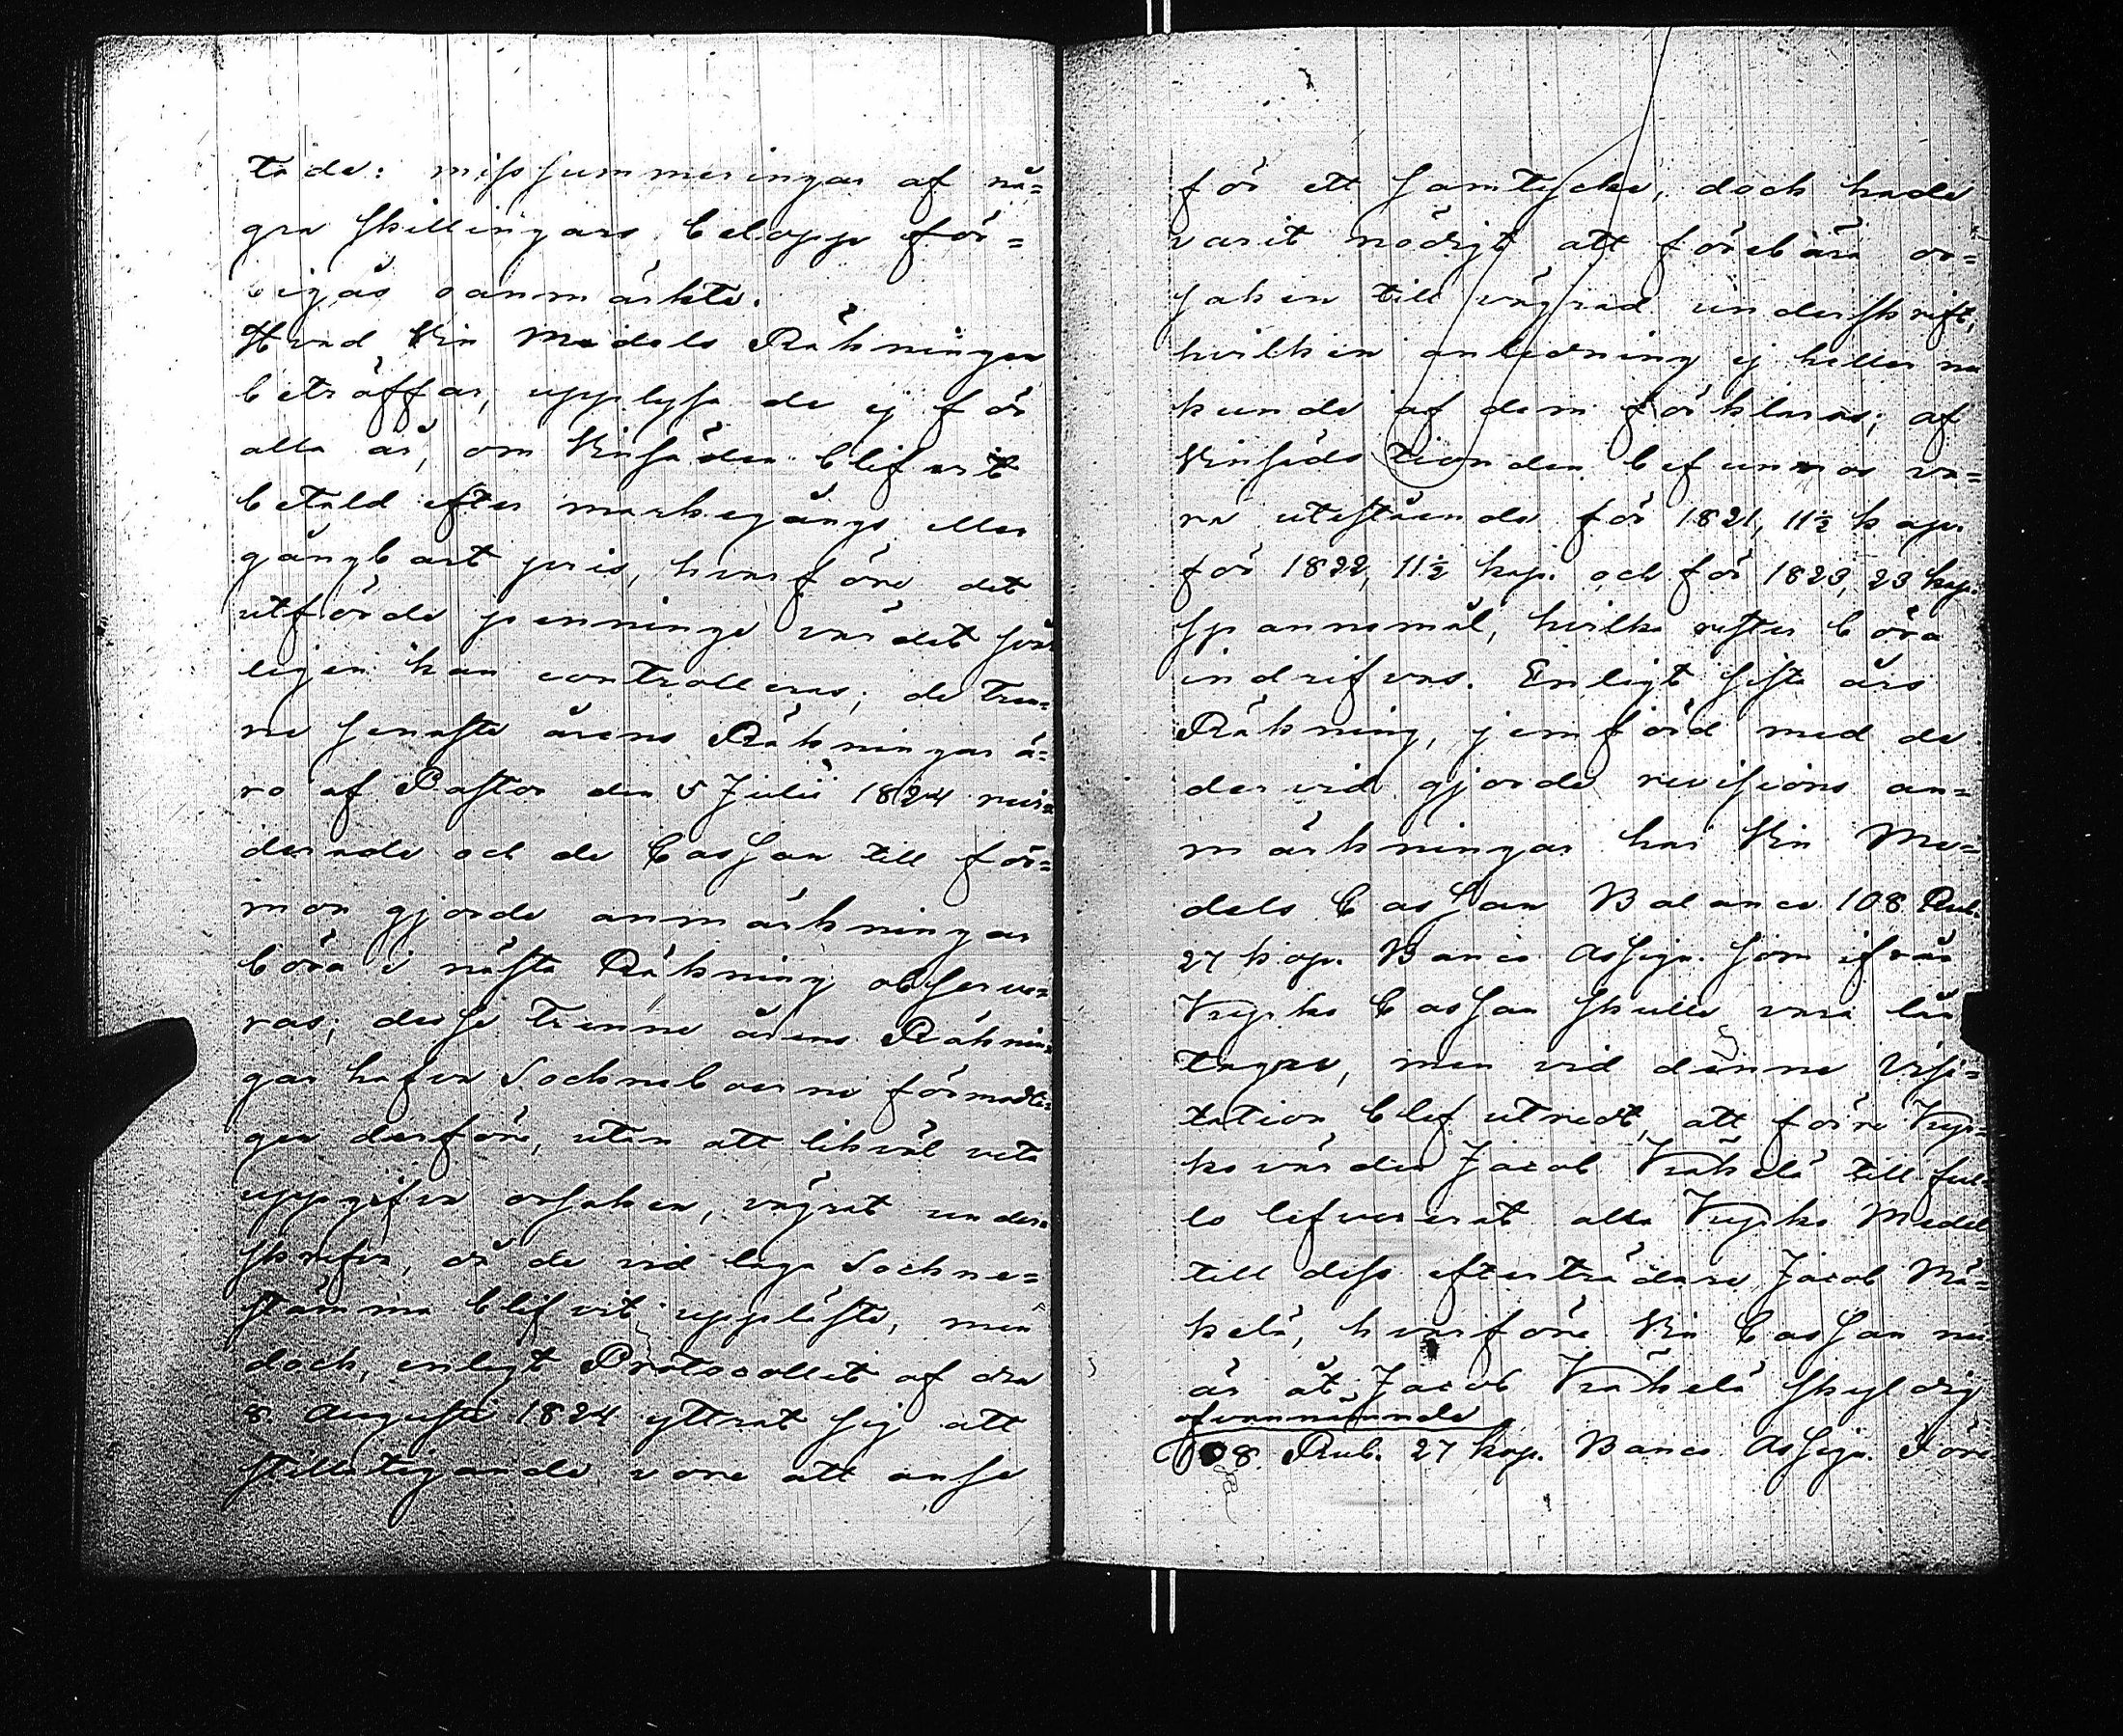 tade: missummeringar af nå=
gra skillingars belopp för=
bigås oanmärkte.
Hvad Vin Medels Räkningen
beträffar, upplysa de ej för
alla år, om Vinsäden blifvit
betald efter markegångs eller
gångbart pris, hvarföre det
utförde penninge värdet svår
ligen kan controlleras; de tren=
ne senaste årens Räkningar ä=
ro af Pastor den 5 Julii 1824 revi=
derade och de Cassan till för=
mon gjorde anmärkningar
böra i nästa Räkning observe=
ras; desse trenne årens Räknin=
gar hafva Sockneboerne förmodli=
gen derföre, utan att likväl veta
uppgifva orsaken, vägrat under
skrifva, då de vid laga Sockne=
stämma blifvit uppläste, men
dock, enligt Protocollet af den
8. Augusti 1824 yttrat sig att
stillatigande vore att anse
för ett samtycke, dock hade
varit nödigt att förebära or=
saken till vägrad underskrift,
hvilken anledning ej heller nu
kunde af dem förklaras; af
Vinsäds tionden befunnos va=
ra utestående för 1821, 11½ kapr
för 1822, 11½ kap. och för 1823, 23 kap.
spannemål, hvilka rester böra
indrifvas. Enligt sista års
Räkning, jemförd med de
dervid gjorde revisions an=
märkningar har Vin Me=
dels Cassan Balance 108 Rub.
27 kop. Banco Assign. som ifrån
Kyrko Cassan skulle vara lån
tagne, men vid denne Visi=
tation blef utredt, att förre Kyr=
kovärden Jacob Knäkelä till ful=
lo lefvererat alla Kyrko Medel
till dess efterträdare Jacob Mä=
kelä, hvarföre Vin Cassan nu
är åt Jacob Knäkelä skyldig
ofvannämnde
108. Rub. 27 kop. Banco Assign. Före